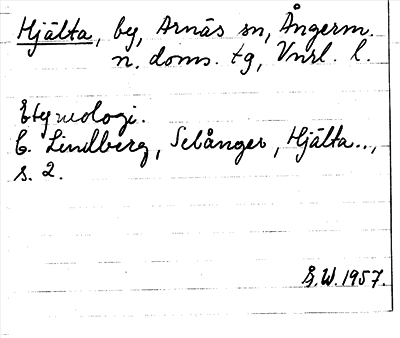 Hjälta, by, Arnäs sn, Ångerm.
n. doms. tg, Vnrl. l.
Etymologi.
C. Lindberg, Selånger, Hjälta..,
s. 2.
S.W. 1957.